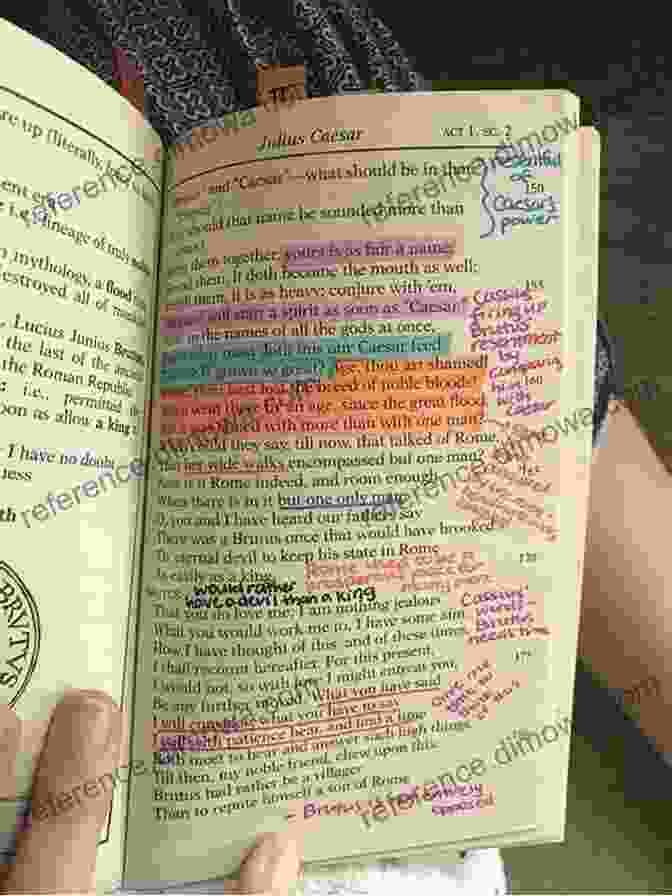 re up (literally,
i.e., lineage of
n mythology, a flood
destroyed all of
Lucius Junius Brutus
the last of the
the Roman Republic
i.e., permitted
soon as allow a king
I have no doubt
uess
th
BRVTVS
Julius Caesar ACT 1. SC. 2
and "Caesar"—what should be in that
150
should that name be sounded more than
them together, yours is as fair a name;
them, it doth become the mouth as well;
them, it is as heavy; conjure with 'em,
155
will start a spirit as soon as "Caesar."
in the names of all the gods at once,
doth this our Caesar feed
grown so great? Age, thou art shamed!
lost the breed of noble bloods!
160
went there by an age, since the great flood,
famed with more than with one man?
could they say, till now, that talked of Rome,
That her wide walks encompassed but one man?
is it Rome indeed, and room enough,
When there is in it but one only man.
O, you and I have heard our fathers say
There was a Brutus once that would have brooked
Th' eternal devil to keep his state in Rome
170
As easily as a king.
BRUTUS
That you do love me, I am nothing jealous.
What you would work me to, I have some aim.
How I have thought of this, and of these times,
I shall recount hereafter. For this present,
175
I would not, so with love I might entreat you,
Be any further moved. What you have said
I will consider; what you have to say
I will with patience hear, and find a time
Both meet to hear and answer such high things.
Till then, my noble friend, chew upon this:
Brutus had rather be a villager
Than to repute himself a son of Rome
resentful
of
Caesar's
power
Cassius
firing up
Brutus'
resentment
by
comparing
him
with
Caesar
Rome used to be a
would rather
have a devil than a king
Cassius'
words -
Brutus
needs time
- Brutus is
opposed
reference.dimowa.com
reference.dimowa.com
reference.dimowa.com
reference.dimowa.com
reference.dimowa.com
reference.dimowa.com